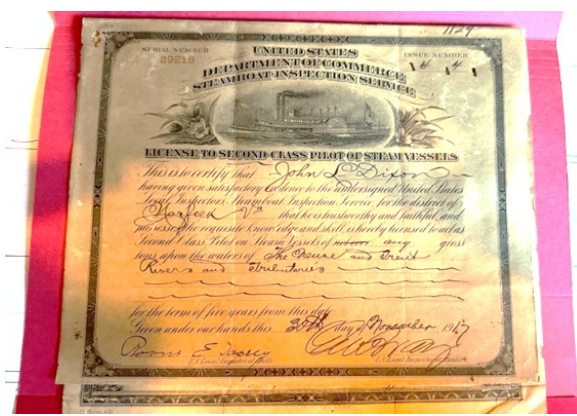 1129
SERIAL NUMBER
29218
UNITED STATES
DEPARTMENT OF COMMERCE
STEAMBOAT INSPECTION SERVICE
ISSUE NUMBER
1 4 4 1
LICENSE TO SECOND CLASS PILOT OF STEAM VESSELS
This is to certify that John L. Dixon
having given satisfactory evidence to the undersigned United States
Local Inspectors, Steamboat Inspection Service, for the district of
Norfolk Va that he is trustworthy and faithful, and
possesses the requisite knowledge and skill, is hereby licensed to act as
Second Class Pilot on Steam Vessels of any gross
tons upon the waters of The Neuse and Trent
Rivers and Tributaries
for the term of five years from this date.
Given under our hands this 30th day of November 1917
E.
U.S. Local Inspector of
U.S. Local Inspector of